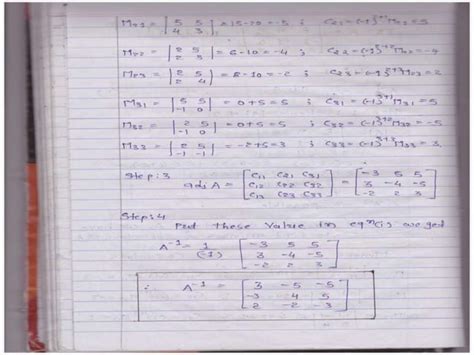 M21 = |5 5| = 15-20 = -5 ; C21 = (-1)^2+1 M21 = 5
|4 3|
M22 = |2 5| = 6-10 = -4 ; C22 = (-1)^2+2 M22 = -4
|2 3|
M23 = |2 5| = 8-10 = -2 ; C23 = (-1)^2+3 M23 = 2
|2 4|
M31 = |5 5| = 0+5 = 5 ; C31 = (-1)^3+1 M31 = 5
|-1 0|
M32 = |2 5| = 0+5 = 5 ; C32 = (-1)^3+2 M32 = -5
|-1 0|
M33 = |2 5| = -2+5 = 3 ; C33 = (-1)^3+3 M33 = 3,
|-1 -1|
Step: 3
adj A = [C11 C21 C31] = [-3 5 5]
[C12 C22 C32] [3 -4 -5]
[C13 C23 C33] [-2 2 3]
Step: 4
Put these value in eqn(i) we get
A^-1 = 1/(-1) [-3 5 5]
[3 -4 -5]
[-2 2 3]
∴ A^-1 = [3 -5 -5]
[-3 4 5]
[2 -2 -3]